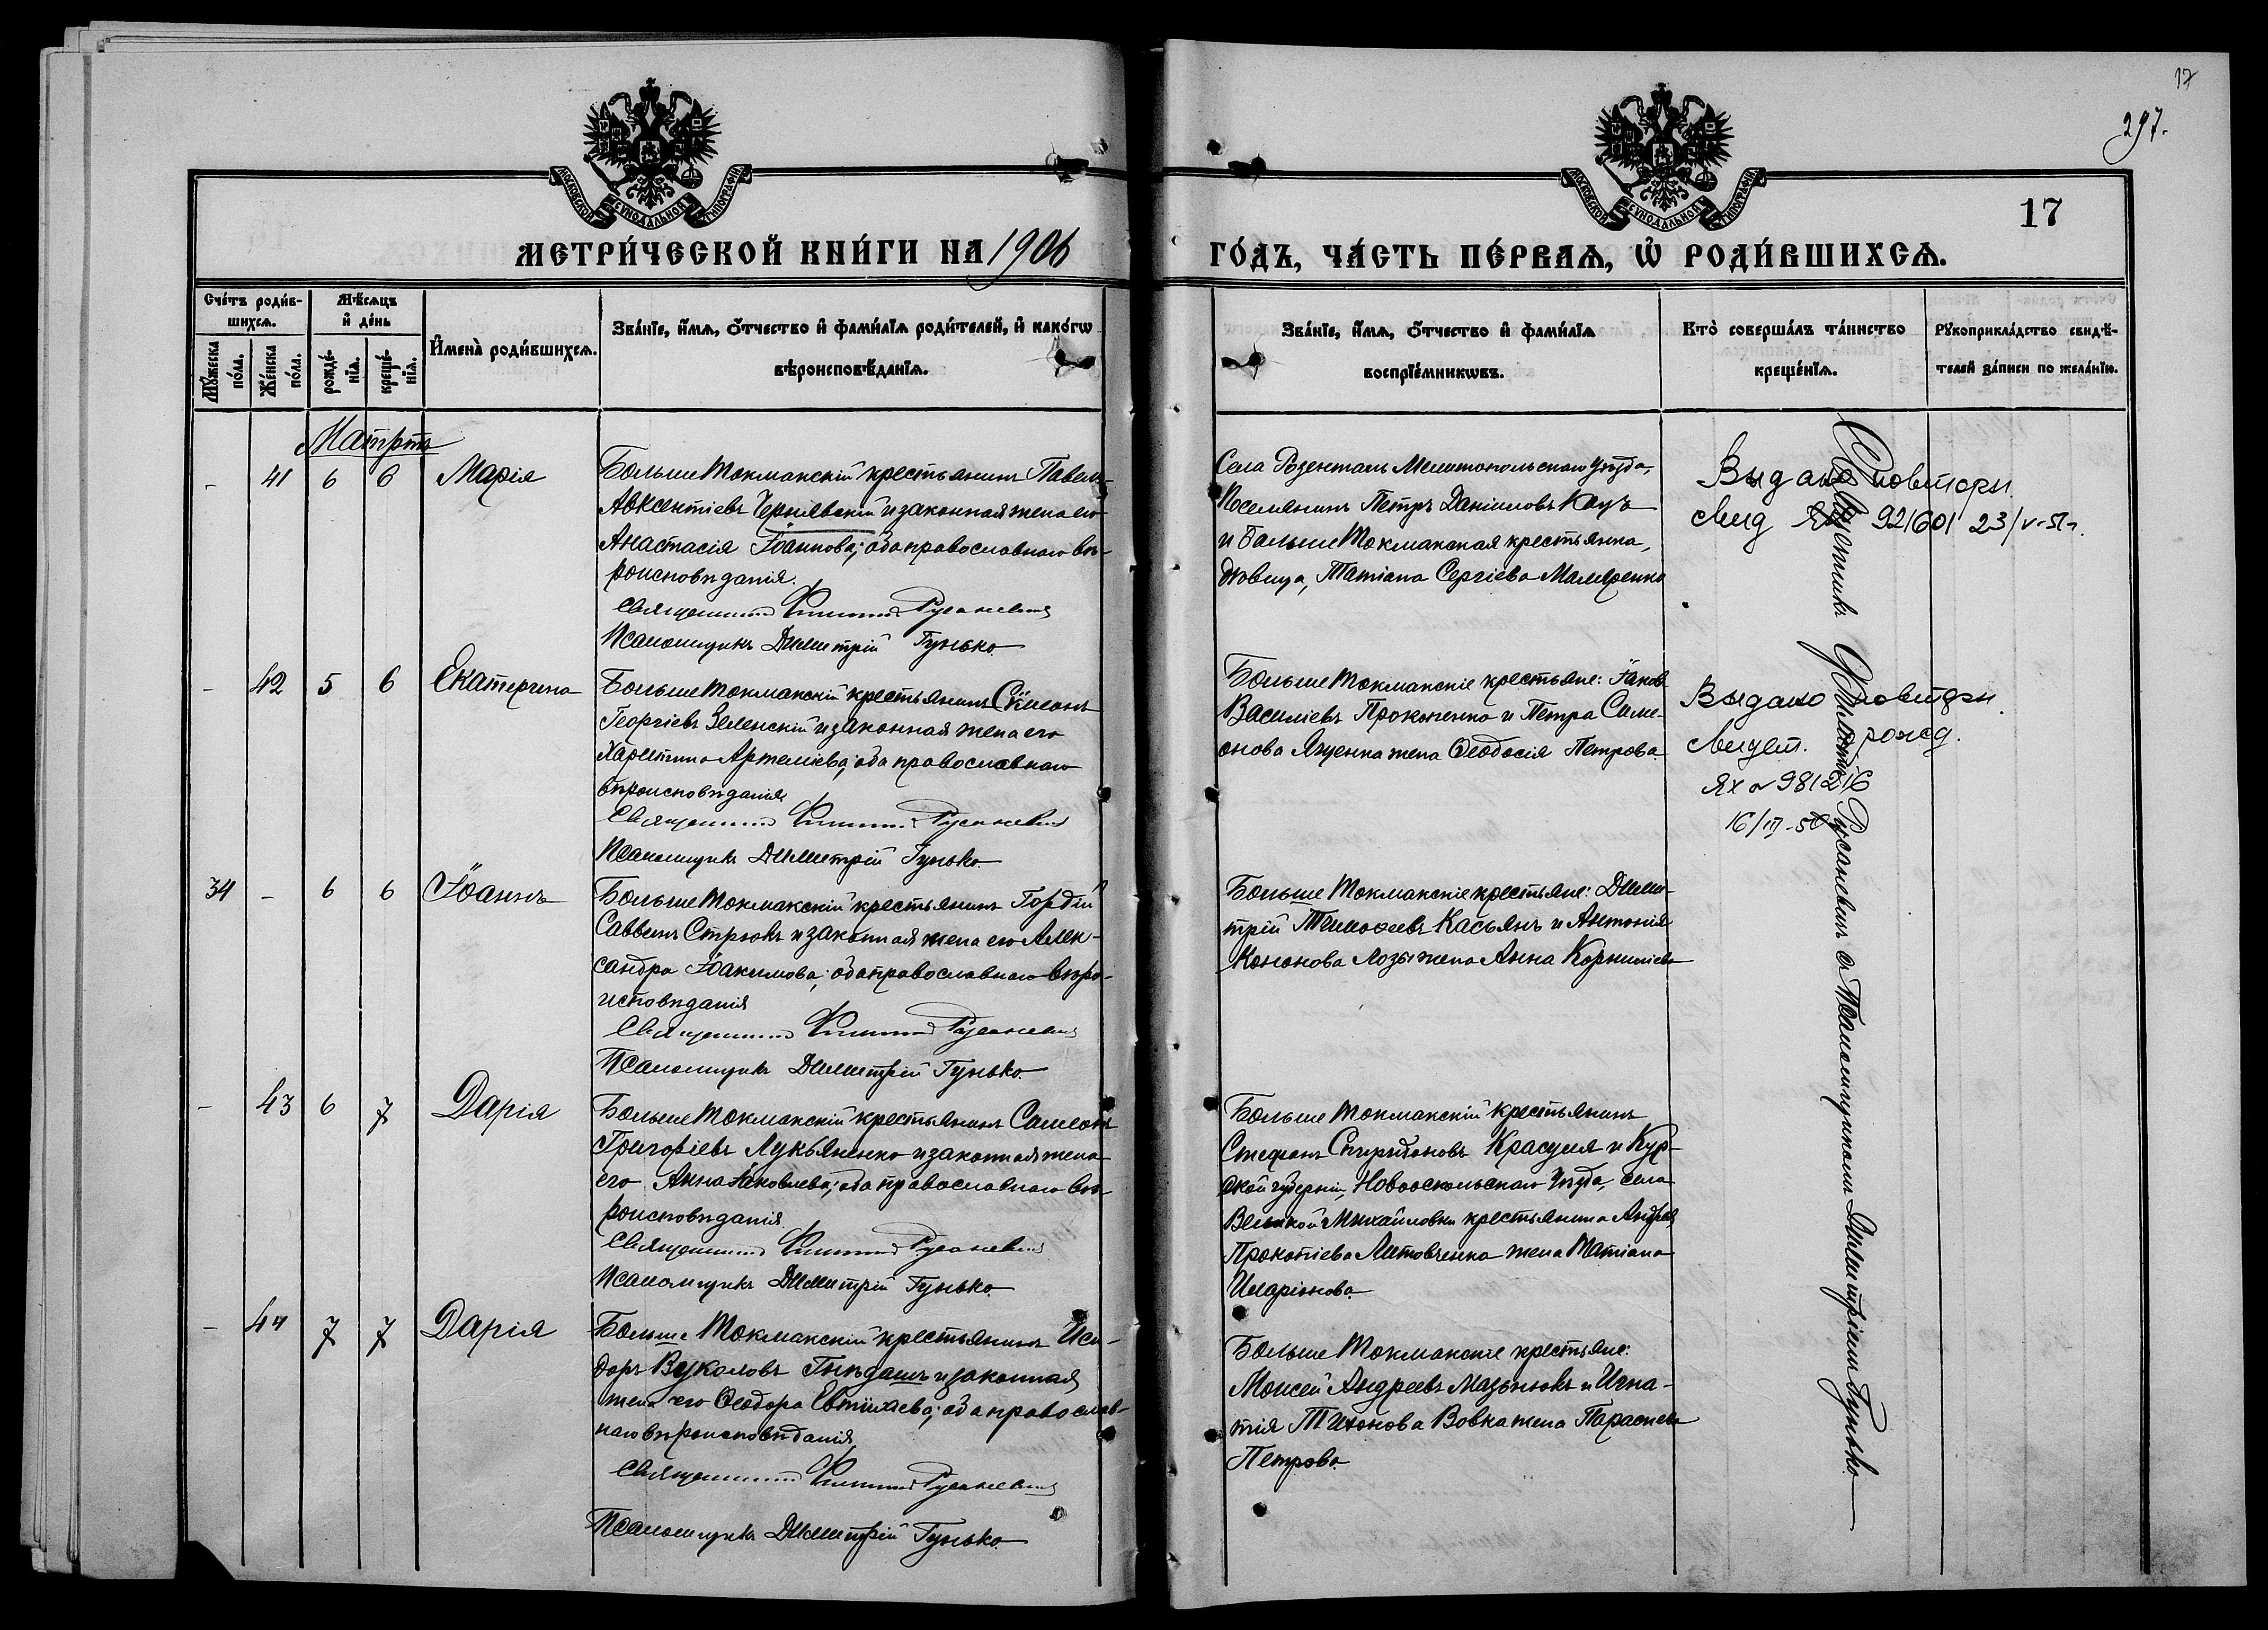 17
297.
МОСКОВСКОЙ СѴНОДАЛЬНОЙ ТИПОГРАФІИ
МОСКОВСКОЙ СѴНОДАЛЬНОЙ ТИПОГРАФІИ
17
МЕТРИ́ЧЕСКОЙ КНИ́ГИ НА 1906 ГО́ДЪ, ЧА́СТЬ ПЕ́РВАѦ, Ѡ҆ РОДИ́ВШИХСѦ.
Сче́тъ роди́в-
шихсѧ.
Мѣ́сѧцъ
и҆ де́нь
Мꙋ́жеска
по́ла.
Же́нска
по́ла.
рожде́-
нїѧ.
креще́-
нїѧ.
И҆мена̀ роди́вшихсѧ.
Зва́нїе, и҆́мѧ, ѻ҆́тчество и҆ фами́лїѧ роди́телей, и҆ како́гѡ
вѣроисповѣ́данїѧ.
Зва́нїе, и҆́мѧ, ѻ҆́тчество и҆ фами́лїѧ
воспрїе́мникѡвъ.
Кто̀ соверша́лъ та́инство
креще́нїѧ.
Рꙋкоприкла́дство свидѣ́-
телей за́писи по жела́нїю.
Мартъ
- 41 6 6 Марія
Больше Токмакскій крестьянинъ Павелъ
Авксентіевъ Чернявскій и законная жена его
Анастасія Іоаннова; оба православнаго вѣ-
роисповѣданія.
Священникъ Филиппъ Русаневичъ
Псаломщикъ Димитрій Гунько.
Села Розенталь Мелитопольскаго уѣзда,
Поселянинъ Петръ Даніиловъ Кацъ
и Больше Токмакская крестьянка,
дѣвица, Татіана Сергіева Маляренко
Выдано повторн.
свид ЯХ 921601 23/V-51 г.
- 42 5 6 Екатерина
Больше Токмакскій крестьянинъ Сѵмеонъ
Георгіевъ Зеленскій и законная жена его
Харитина Артеміева; оба православнаго
вѣроисповѣданія
Священникъ Филиппъ Русаневичъ
Псаломщикъ Димитрій Гунько.
Больше Токмакскіе крестьяне: Іаковъ
Василіевъ Прокопенко и Петра Симе-
онова Яценка жена Ѳеодосія Петрова.
Выдано повторн.
свидет. рожд.
ЯХ № 981216
16/III-56
34 - 6 6 Іоаннъ
Больше Токмакскій крестьянинъ Гордій
Саввинъ Стрюкъ и законная жена его Алек-
сандра Іоакимова; оба православнаго вѣро-
исповѣданія
Священникъ Филиппъ Русаневичъ
Псаломщикъ Димитрій Гунько.
Больше Токмакскіе крестьяне: Дими-
трій Тимоѳеевъ Касьянъ и Антонія
Кононова Лозы жена Анна Корниліева
- 43 6 7 Дарія
Больше Токмакскій крестьянинъ Самсонъ
Григоріевъ Лукьяненко и законная жена
его Анна Іаковлева; оба православнаго вѣ-
роисповѣданія
Священникъ Филиппъ Русаневичъ
Псаломщикъ Димитрій Гунько.
Больше Токмакскій крестьянинъ
Стефанъ Спиридоновъ Красуля и Кур-
ской губерніи, Новооскольскаго уѣзда, села
Великой Михайловки крестьянина Андрея
Прокопіева Литовченка жена Татіана
Иларіонова.
- 44 7 7 Дарія
Больше Токмакскій крестьянинъ Иси-
доръ Вуколовъ Гнѣдашъ и законная
жена его Ѳеодора Евтихіева; оба православ-
наго вѣроисповѣданія
Священникъ Филиппъ Русаневичъ
Псаломщикъ Димитрій Гунько.
Больше Токмакскіе крестьяне:
Моисей Андреевъ Мазънюкъ и Игна-
тія Тихонова Вовка жена Параскева
Петрова.
Священникъ Филиппъ Русаневичъ съ Псаломщикомъ Димитріемъ Гунько.